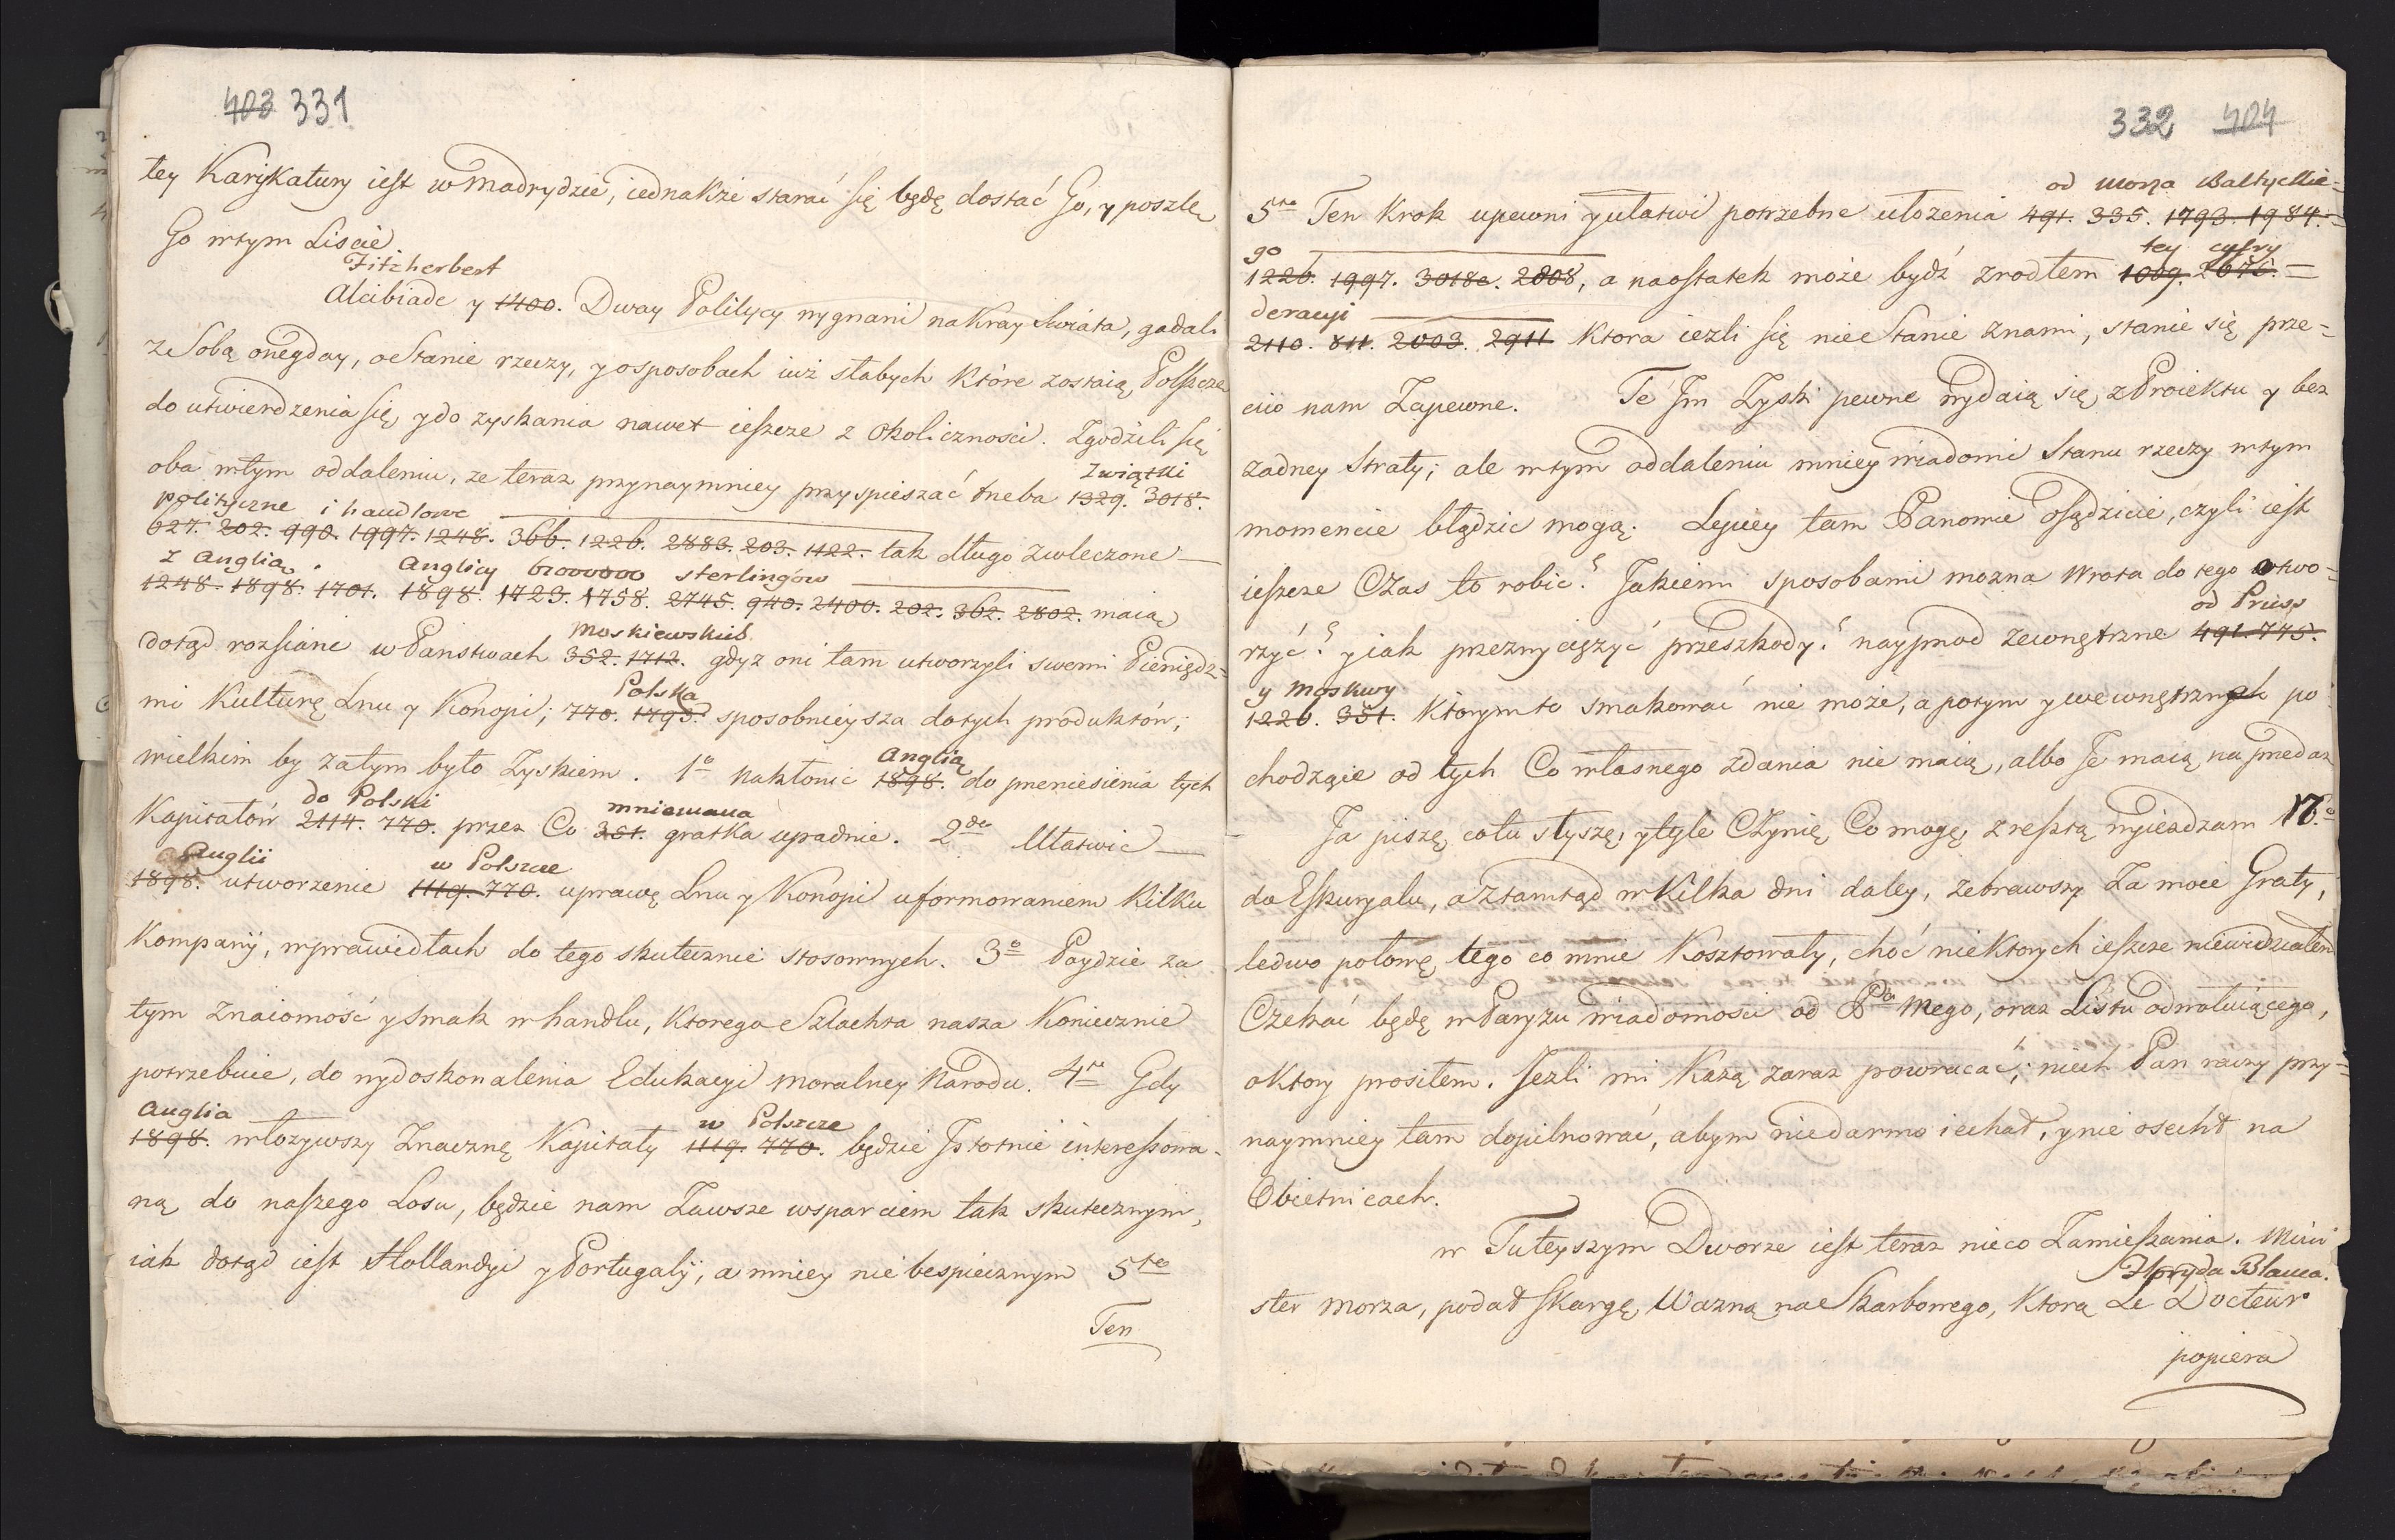 403 331
tey Karykatury iest w Madrydzie, iednakże starać się będę dostać Go, y poszlę
Go w tym Liscie.
Fitzherbert
Alcibiade y 1400. Dway Politycy wygnani na Kray Swiata, gadali
z Sobą onegday, o Stanie rzeczy, y o sposobach iuż słabych które zostaią Polszcze
do utwierdzenia się, y do zyskania nawet ieszcze z okoliczności. Zgodzili się
oba w tym oddaleniu, ze teraz przynaymniey przyspieszać trzeba
związki
1329. 3018.
polityczne i handlowe
627. 202. 990. 1997. 1248. 366. 1226. 2883. 203. 1122. tak długo zwleczone
z Anglią. Anglicy sterlingów
1248. 1898. 1701. 1898. 1723. 1758. 2745. 940. 2400. 202. 362. 2802. maią
Moskiewskich
dotąd rozsiane w Panstwach 352. 1712. gdyz oni tam utworzyli swemi Pieniędz=
Polska
mi Kulturę Lnu y Konopi; 770. 1793. sposobnieysza do tych produktów;
Anglią
wielkim by zatym było Zyskiem. 1o nakłonić 1898. do przeniesienia tych
do Polski mniemana
Kapitałów 2114. 770. przez Co 351. gratka upadnie. 2do Ułatwić
Anglii w Polszcze
1898. utworzenie 1119. 770. uprawę Lnu y Konopi uformowaniem kilku
Kompanij, w prawidłach do tego skutecznie stosownych. 3o Poydzie za
tym Znaiomość y smak w handlu, ktorego Szlachta nasza Koniecznie
potrzebuie, do wydoskonalenia Edukacyi moralney Narodu. 4to Gdy
Anglia w Polszcze
1898. włożywszy Znaczną Kapitały 1119. 770. będzie Istotnie interessowa=
ną do naszego Losu, będzie nam Zawsze wsparciem tak skutecznym,
iak dotąd iest Hollandyi y Portugalij, a mniey niebespiecznym 5to
Ten
332 404
od Morza Baltyckie=
5to Ten Krok upewni y ułatwi potrzebne ułożenia 491. 335. 1793. 1984.=
go tey cyfry
1226. 1997. 3018e. 2008, a naostatek może bydź zrodłem 1009. 2676.=
deracyi
2110. 811. 2003. 2911 ktora iezli się nie Stanie z nami, stanie się prze=
ciw nam Zapewne. Te Im Zyski pewne wydaią się z Proiektu y bez
zadney Straty; ale w tym oddaleniu mniey wiadomi Stanu rzeczy w tym
momencie błądzic mogą. Lepiey tam Panowie osądzicie, czyli iest
ieszcze Czas to robic? Jakiemi sposobami mozna Wrota do tego otwo=
od Pruss
rzyć? y iak przezwyciężyć przeszkody? nayprzod zewnętrzne 491. 775.
y Moskwy
1226. 351. Którym to smakować nie może, a potym y wewnętrznych po
chodzące od tych Co własnego zdania nie maią, albo Je maią na przedaz
Ja piszę co tu słyszę, y tyle Czynię Co mogę, zresztą wyieżdzam 17o
do Eskuryalu, a ztamtąd w Kilka dni daley, zebrawszy Za moie Graty,
ledwo połowę tego co mnie Kosztowały, choć niektorych ieszcze niewidziałem
Czekać będę w Paryzu wiadomości od Pa Mego, oraz Listu odwołuiącego,
o ktory prosiłem. Jezli mi Każą zaraz powracać; niech Pan raczy przy=
naymniey tam dopilnować, abym niedarmo iechał, y nie osechł na
Obietnicach.
w Tuteyszym Dworze iest teraz nieco Zamieszania. Mini
Floryda Blanca.
ster Morza, podał skargę Ważną na Skarbowego, ktorą Le Docteur
popiera